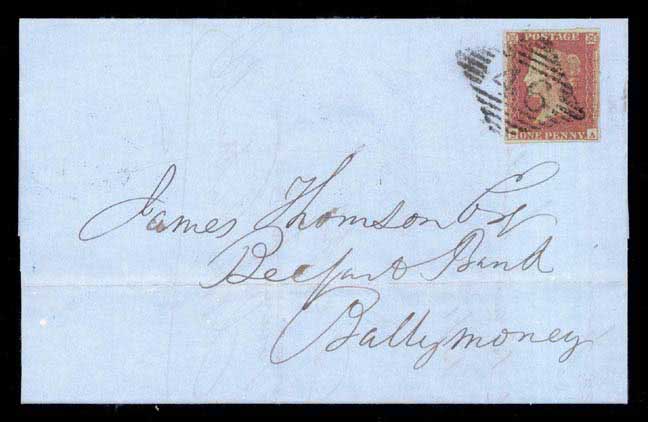 POSTAGE
ONE PENNY
A
James Thomson Esq
Belfast Bank
Ballymoney